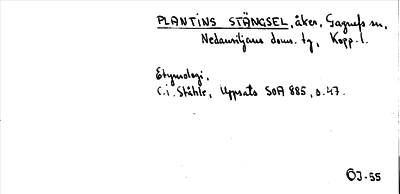 PLANTINS STÄNGSEL, åker, Gagnefs sn,
Nedansiljans doms. tg, Kopp. l.
Etymologi.
C.I. Ståhle, Uppsats SOÄ 885, s. 47.
ÖJ-55